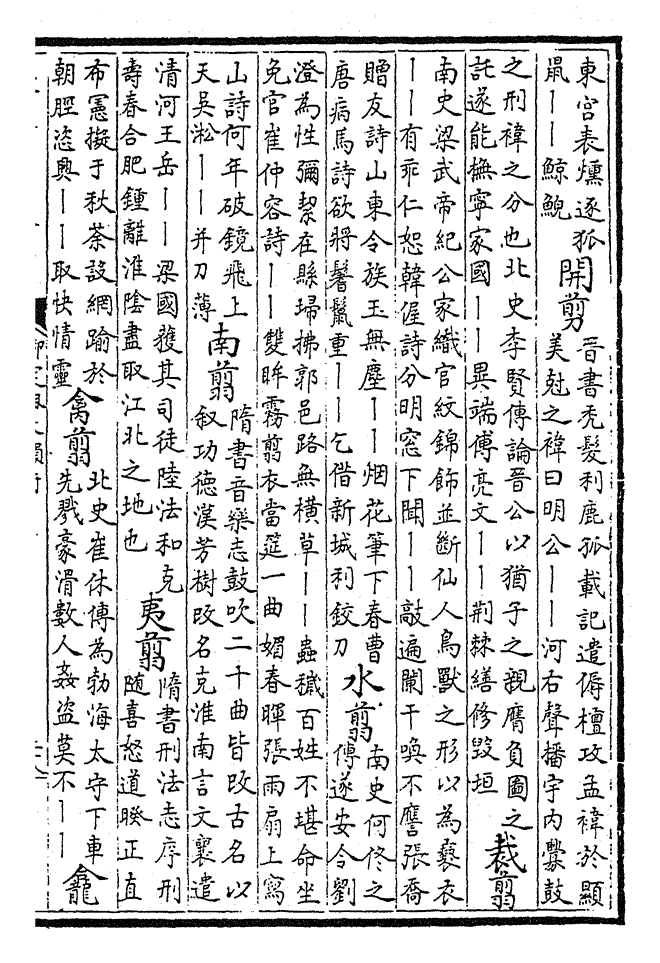 東宫表燻逐狐
鼠丨丨鯨鯢
開剪
晉書秃髮利鹿孤載記遣傉檀攻孟禕於顯
美尅之禕曰明公丨丨河右聲播宇内釁鼓
之刑禕之分也北史李賢傳論晉公以猶子之親膺負圖之
託遂能撫寧家國丨丨異端傅亮文丨丨荆棘繕修毀垣
裁翦
南史梁武帝紀公家織官紋錦飾並斷仙人鳥獸之形以為褻衣
丨丨有乖仁恕韓偓詩分明窓下聞丨丨敲遍闌干喚不譍張喬
贈友詩山東令族玉無塵丨丨烟花筆下春曹
唐病馬詩欲將鬐鬛重丨丨乞借新城利鉸刀
水翦
南史何佟之
傳遂安令劉
澄為性彌絜在縣掃拂郭邑路無横草丨丨蟲穢百姓不堪命坐
免官崔仲容詩丨丨雙眸霧翦衣當筵一曲媚春暉張雨扇上寫
山詩何年破鏡飛上
天吳淞丨丨并刀薄
南翦
隋書音樂志鼓吹二十曲皆改古名以
叙功徳漢芳樹改名克淮南言文襄遣
清河王岳丨丨梁國獲其司徒陸法和克
壽春合肥鍾離淮陰盡取江北之地也
夷翦
隋書刑法志序刑
隨喜怒道睽正直
布憲擬于秋荼設網踰於
朝脛恣興丨丨取快情靈
禽翦
北史崔休傳為勃海太守下車
先戮豪滑數人姦盗莫不丨丨
龕